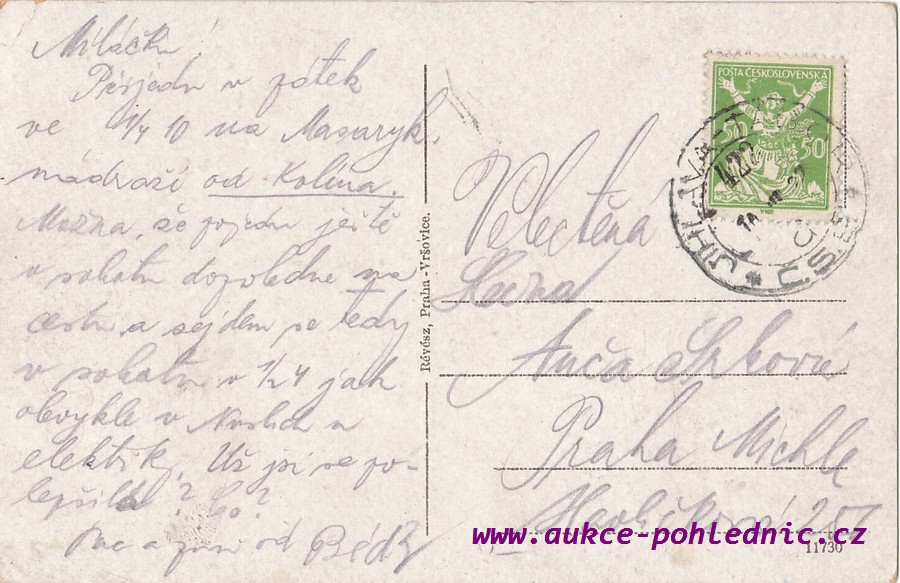 Miláčku!
Přijedu v pátek
ve 1/4 10 na Masaryk.
nádraží od Kolína.
Možna, že pojedu ještě
v sobotu dopoledne na
cestu a sejdem se tedy
v sobotu v 1/2 4 jak
obvykle v Nuslích u
elektriky. Už jsi se po-
lepšila? Co?
a od Béďy
Révész, Praha-Vršovice.
POŠTA ČESKOSLOVENSKÁ
50 50
JIHLAVA
Velectěná
Slečna
Anča
Praha Michle
Havlíčkova
11730
www.aukce-pohlednic.cz